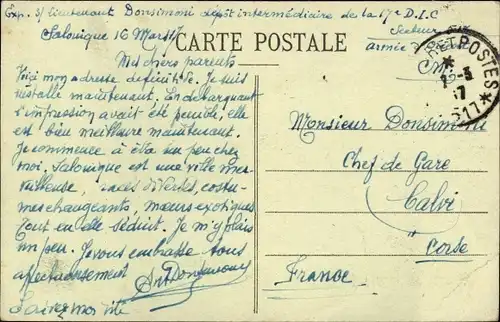 Exp. S/ lieutenant Donsimoni dépôt intermédiaire de la 17e D.I.C
Salonique 16 Mars 17
Secteur
armée
CARTE POSTALE
ET POSTES
*
17
517
*
Mes chers parents
Voici mon adresse définitive. Je suis
installé maintenant. En débarquant
l'impression avait été pénible, elle
est bien meilleure maintenant.
Je commence à être un peu chez
moi. Salonique est une ville mer-
veilleuse, races diverses, costu-
mes changeants, mœurs exotiques
Tout en elle séduit. Je m'y plais
un peu. Je vous embrasse tous
affectueusement
Donsimoni
Ecrivez moi vite
Monsieur Donsimoni
Chef de Gare
Calvi
Corse
France